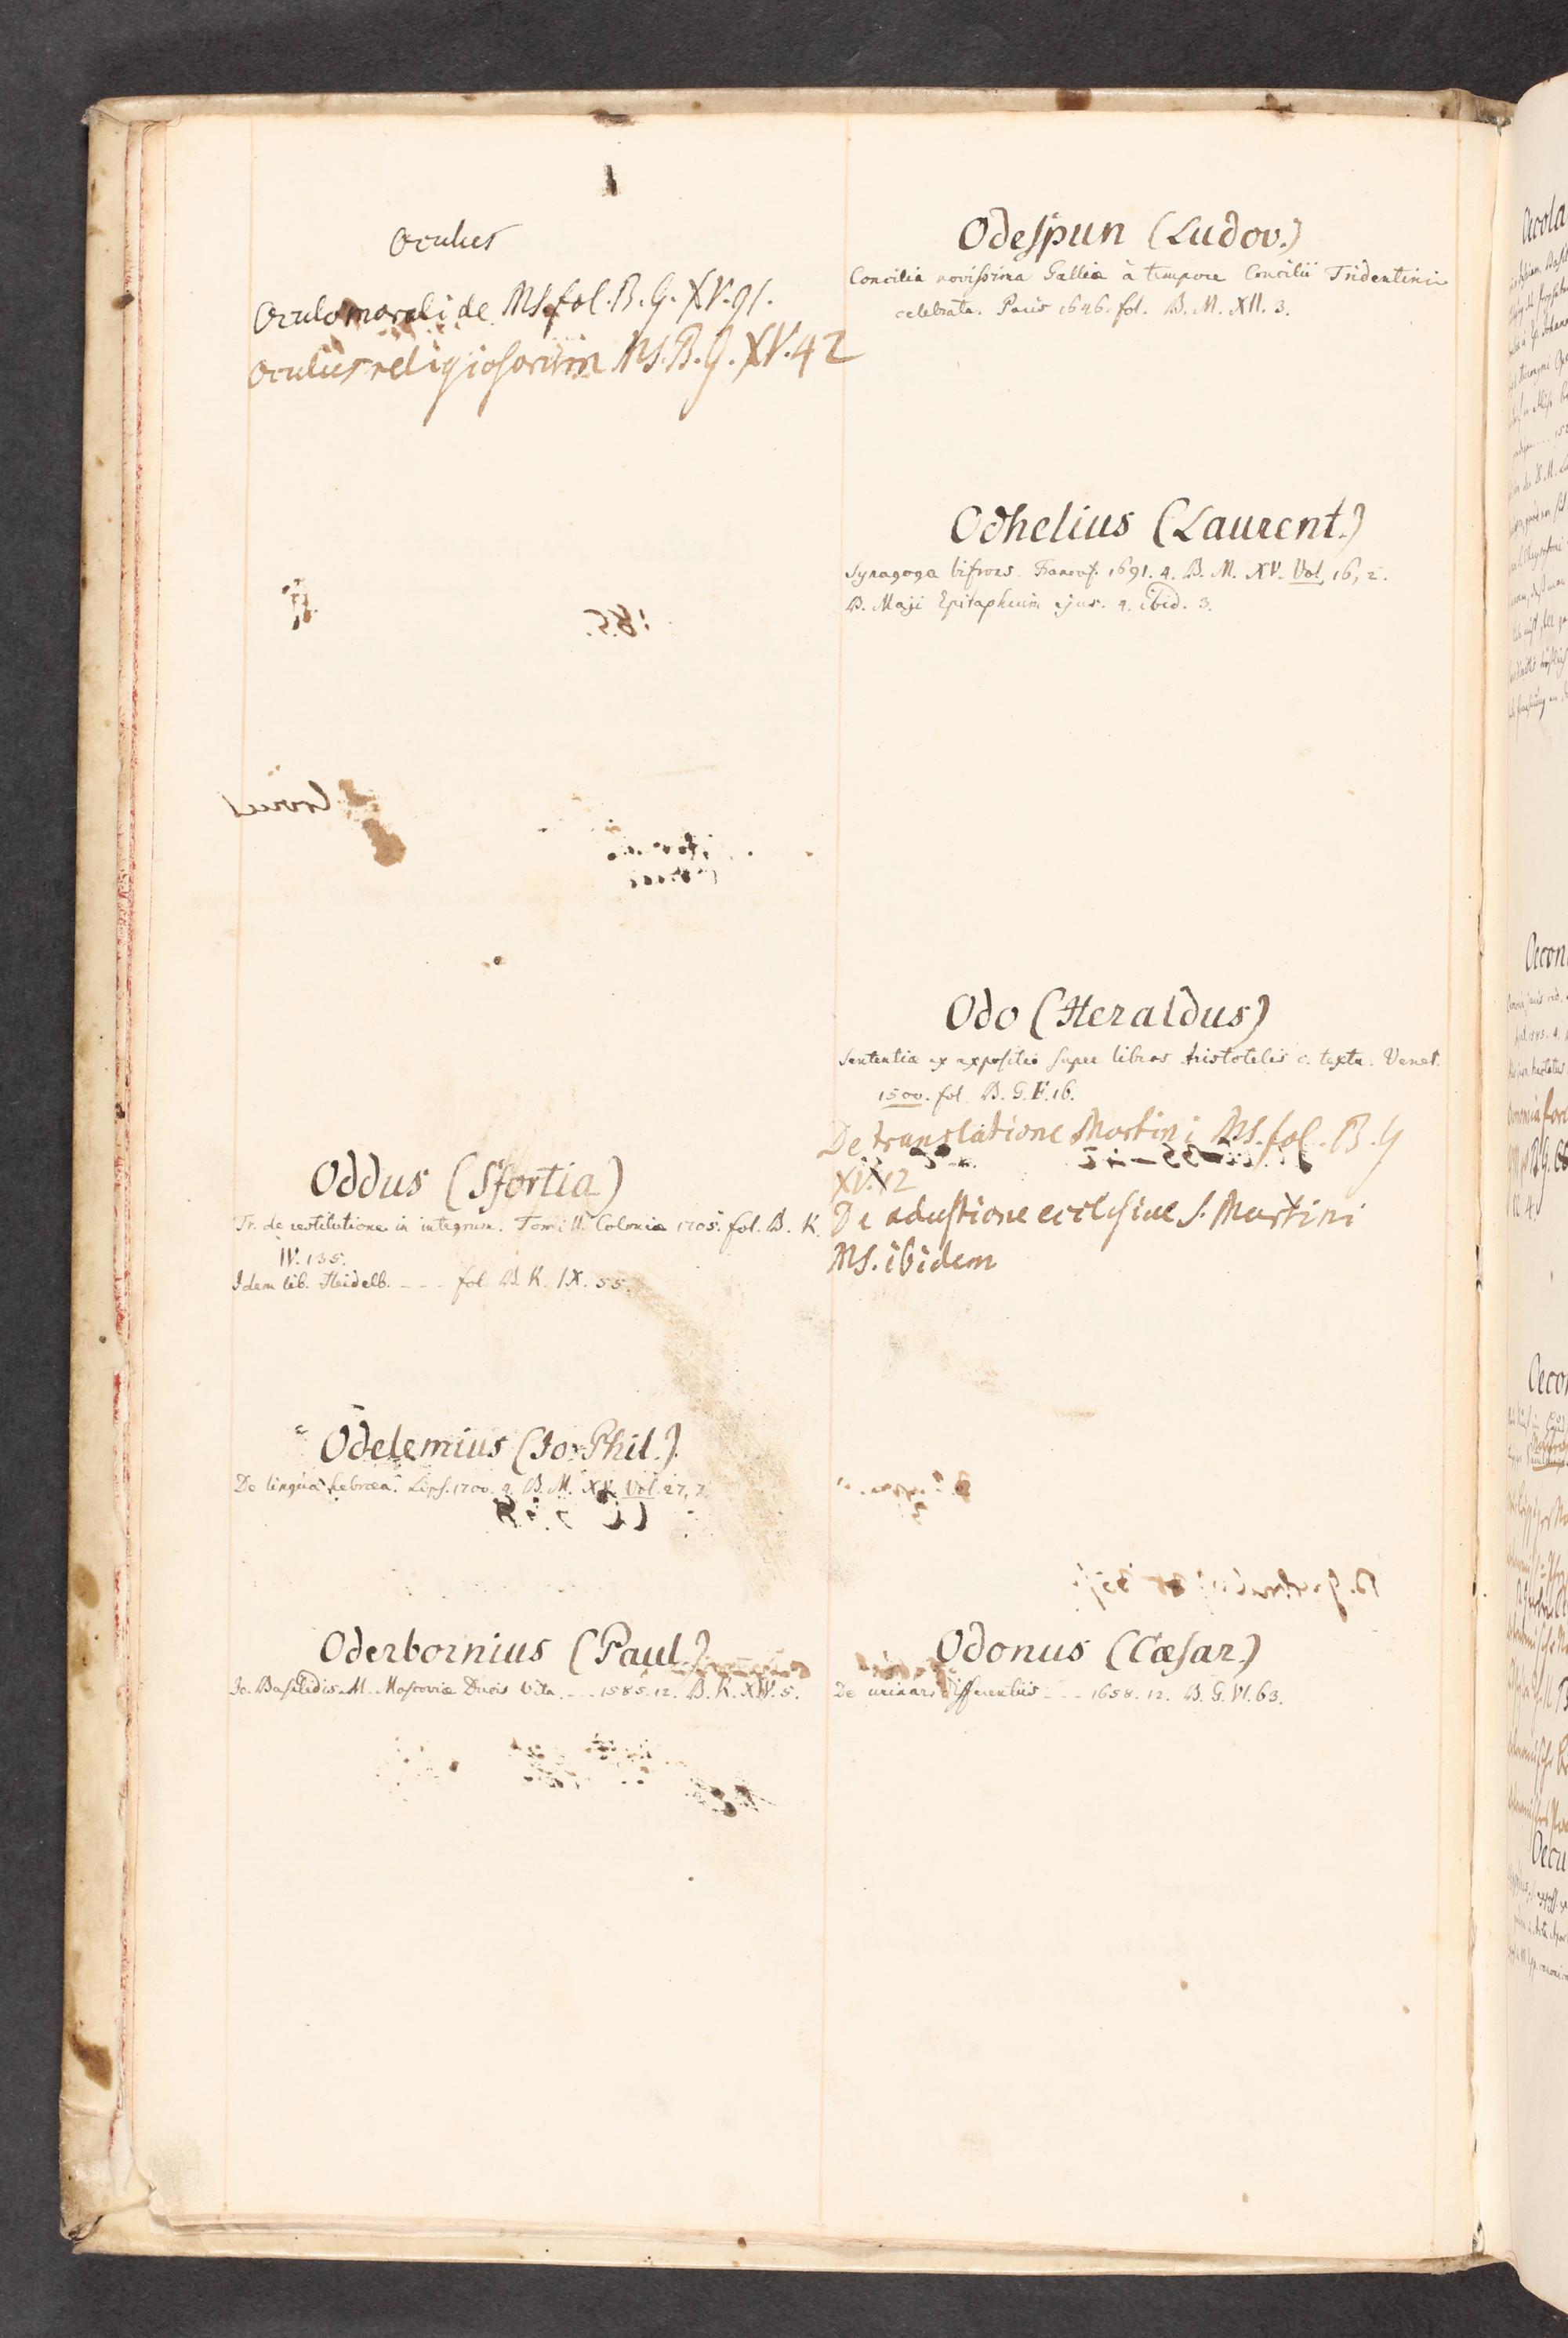 Oculus
Oculo morali de MS. fol. B. G. XV. 91.
Oculus religiosorum MS. B. G. XV. 42
Oddus (Sfortia)
Tr. de restitutione in integrum. Tomi II. Coloniæ 1705. fol. B. K.
IV. 135.
Idem lib. Heidelb. - - - fol. B. K. IX. 55.
Odelemius (Jo. Phil.)
De linguâ hebræâ. Lips. 1700. 4. B. M. XV. Vol. 27, 7.
Oderbornius (Paul.)
Jo. Basilidis M. Moscoviæ Ducis vita. - - - 1585. 12. B. K. XIV. 5.
Odespun (Ludov.)
Concilia novissima Galliæ à tempore Concilii Tridentini
celebrata. Paris 1646. fol. B. M. XII. 3.
Odhelius (Laurent.)
Synagoga bifrons. Francof. 1691. 4. B. M. XV. Vol. 16, 2.
B. Maji Epitaphium ejus. 4. ibid. 3.
Odo (Heraldus)
Sententia ex expositio super libros Aristotelis c. textu. Venet.
1500. fol. B. G. F. 16.
De translatione Martini MS. fol. B. G
XV. 12
De adustione ecclesiae S. Martini
MS. ibidem
Odonus (Cæsar.)
De urinar. differentiis - - - 1658. 12. B. G. VI. 63.